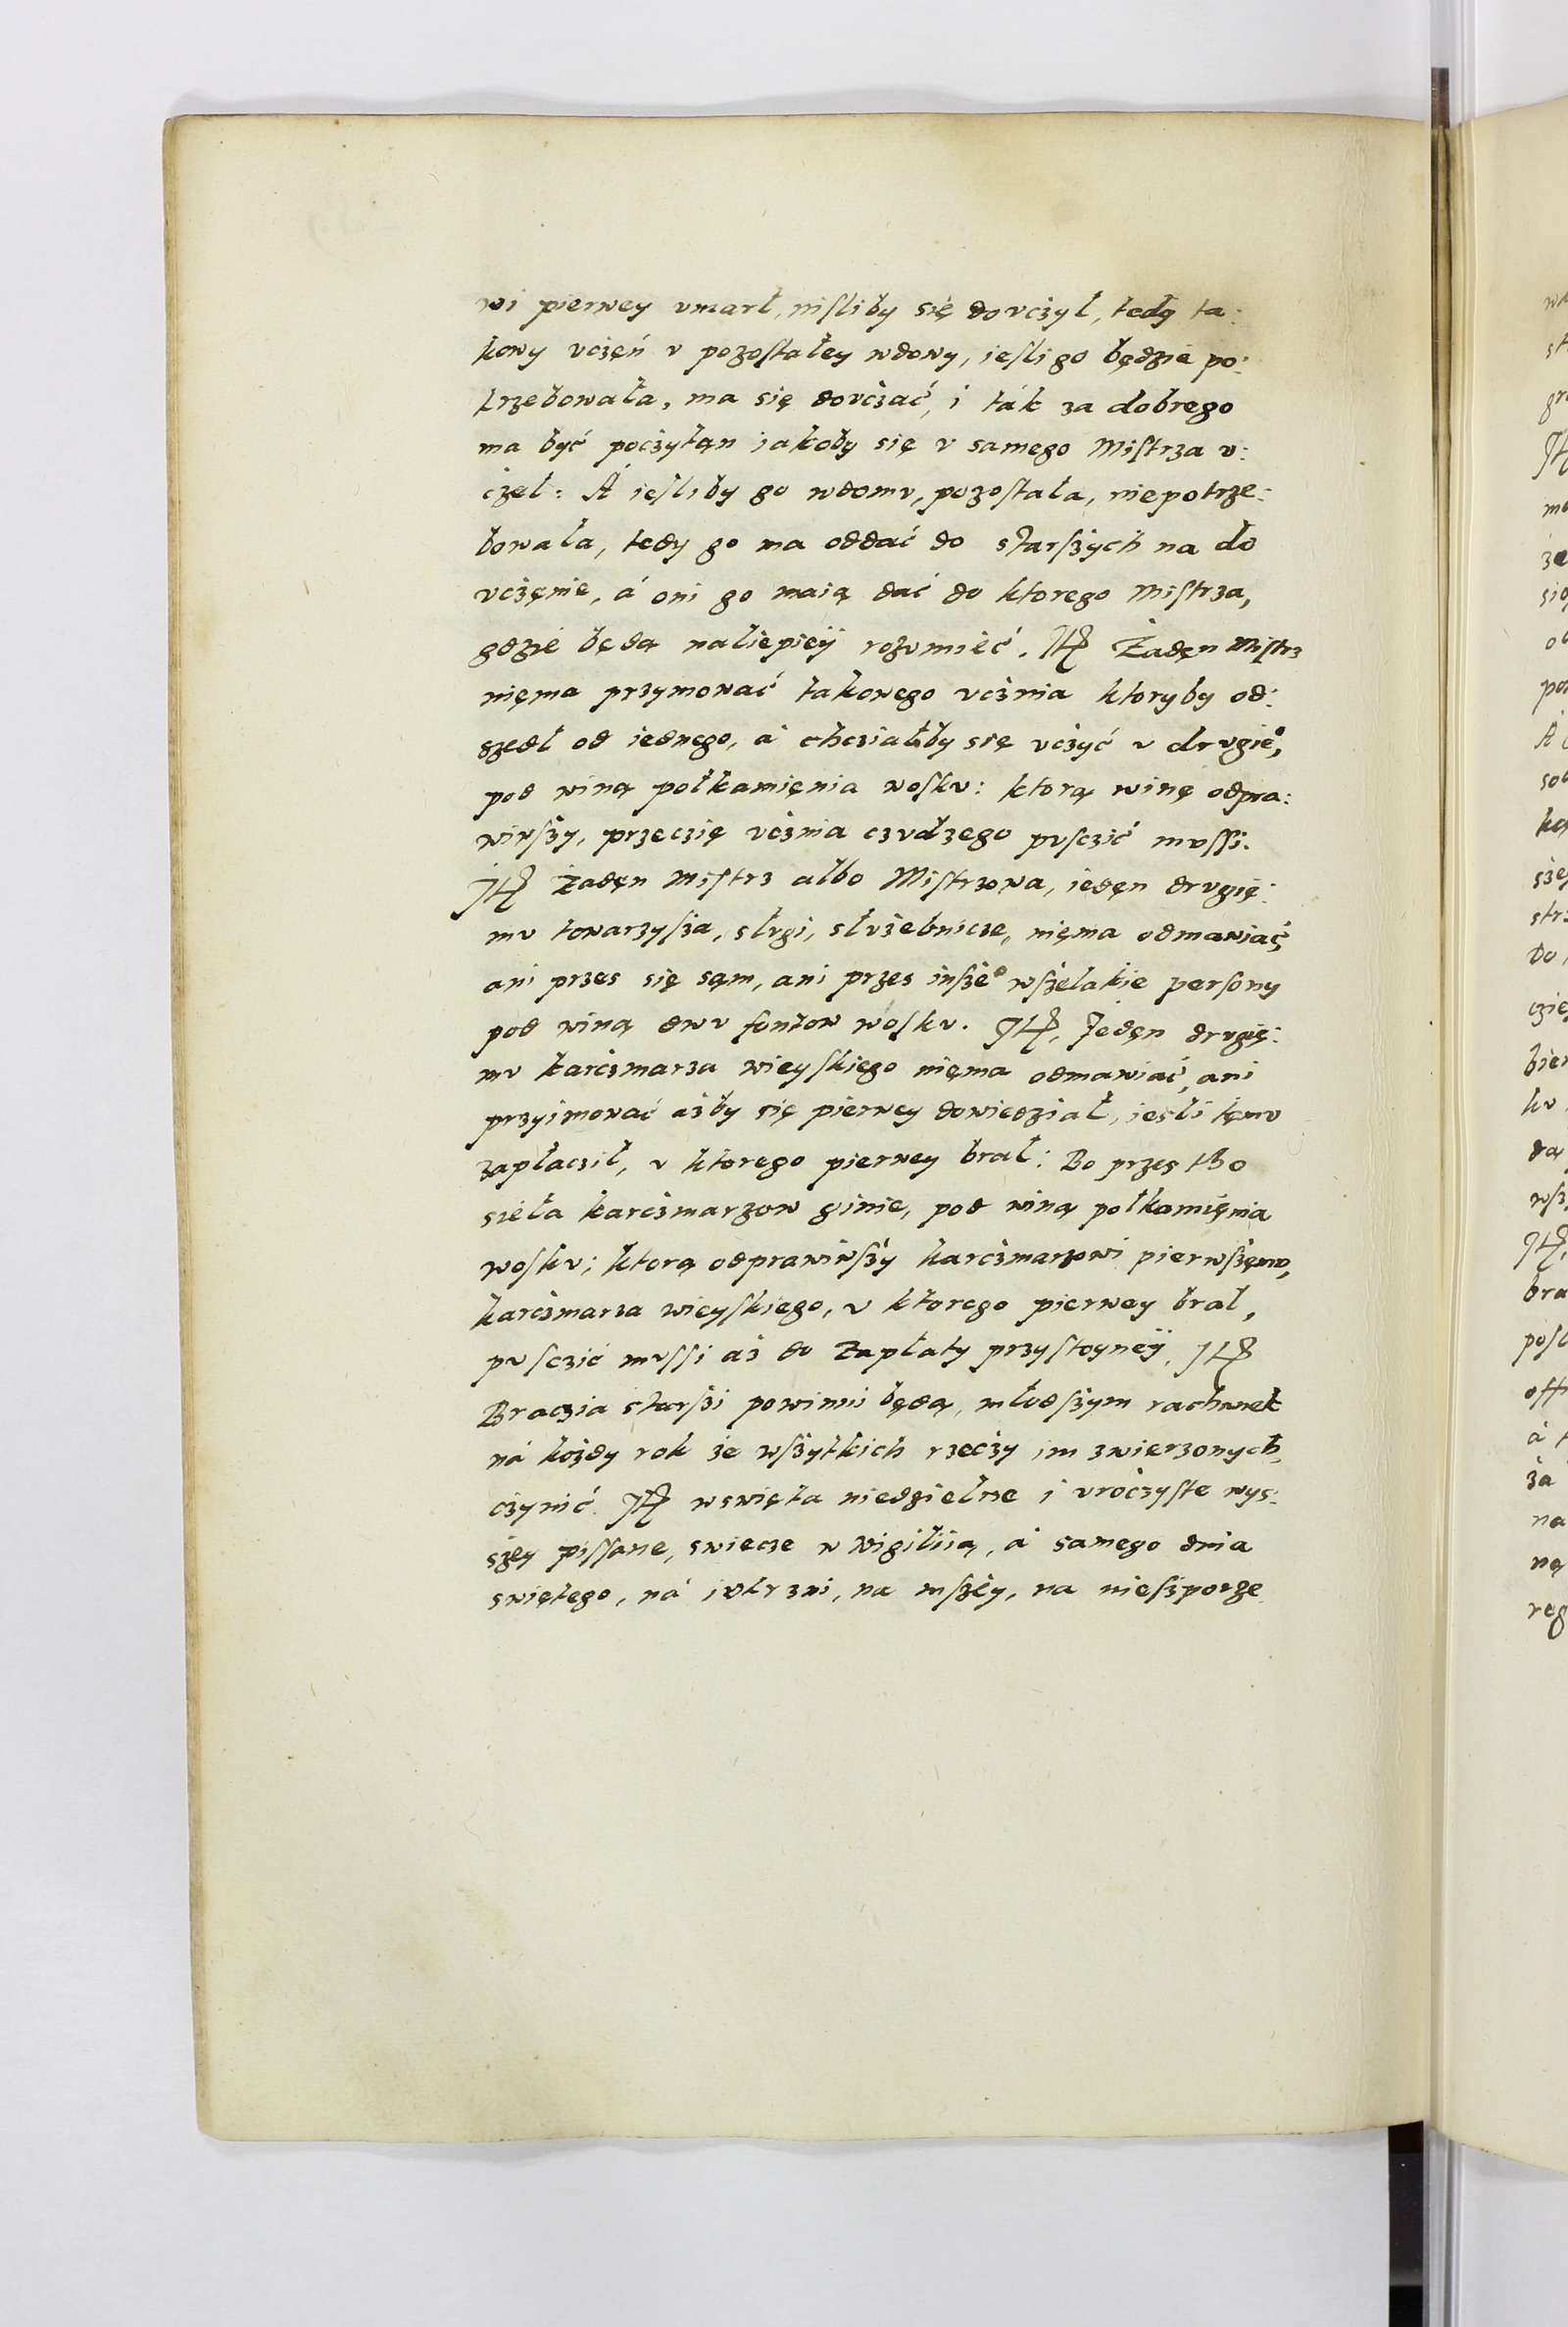 wi pierwey vmarł, niſliby się dovcżył, tedy ta:
kowy vcżęń v pozoſtałey wdowy, ieſli go będzie po:
trzebowała, ma się dovcżać, i ták za dobrego
ma być pocżytąn iakoby się v samego Miſtrza v:
cżel: Á ieſliby go wdomv, pozoſtała, niepotrze:
bowała, tedy go ma oddać do stárſżych na do
vcżęnie, á oni go maią dać do ktorego Miſtrza,
gdzie będą naliepieÿ rozvmieć. Jtē Żadęn Miſtrz
nięma przymować takowego vcżnia ktoryby od:
szedł od iednego, á chcziałby się vcżyć v drvgie°,
pod winą połkamięnia woſkv: ktorą winę odpra:
wiwſży, przeczię vcżnia czvdzego pvſczić mvſſi.
Jtē Żadęn Miſtrz albo Miſtrzowa, iedęn drvgię:
mv towarzyſża, slvgi, slvżebnicze, nięma odmawiać
ani przes się sąm, ani przes inſże wſżelakie perſony
pod winą dwv fontow woſkv. Jtē, Jedęn drvgię:
mv karcżmarza wieyſkiego nięma odmawiać, ani
przyimować ażby się pierwey dowiedział, ieśli tęmv
zapłacził, v ktorego pierwey brał: Bo przes tho
sieła karcżmarzow ginie, pod winą połkamięnia
woſkv; ktorą odprawiwſży karcżmarzowi pierwſżęmv,
karcżmarza wieyſkiego, v ktorego pierwey brał,
pvſczić mvſſi aż do zapłaty przyſtoyneÿ. Jtē
Braczia stárſżi powinni będą, młodſżym rachvnek
ná kożdy rok że wſżytkich rzecży im zwierzonych,
cżynić. Jtē wswięta niedzielne i vrocżyſte wys:
szey piſſane, swiecze w wigiliią, á samego dnia
swiętego, ná ivtrzni, na mſżey, na nieſżporze